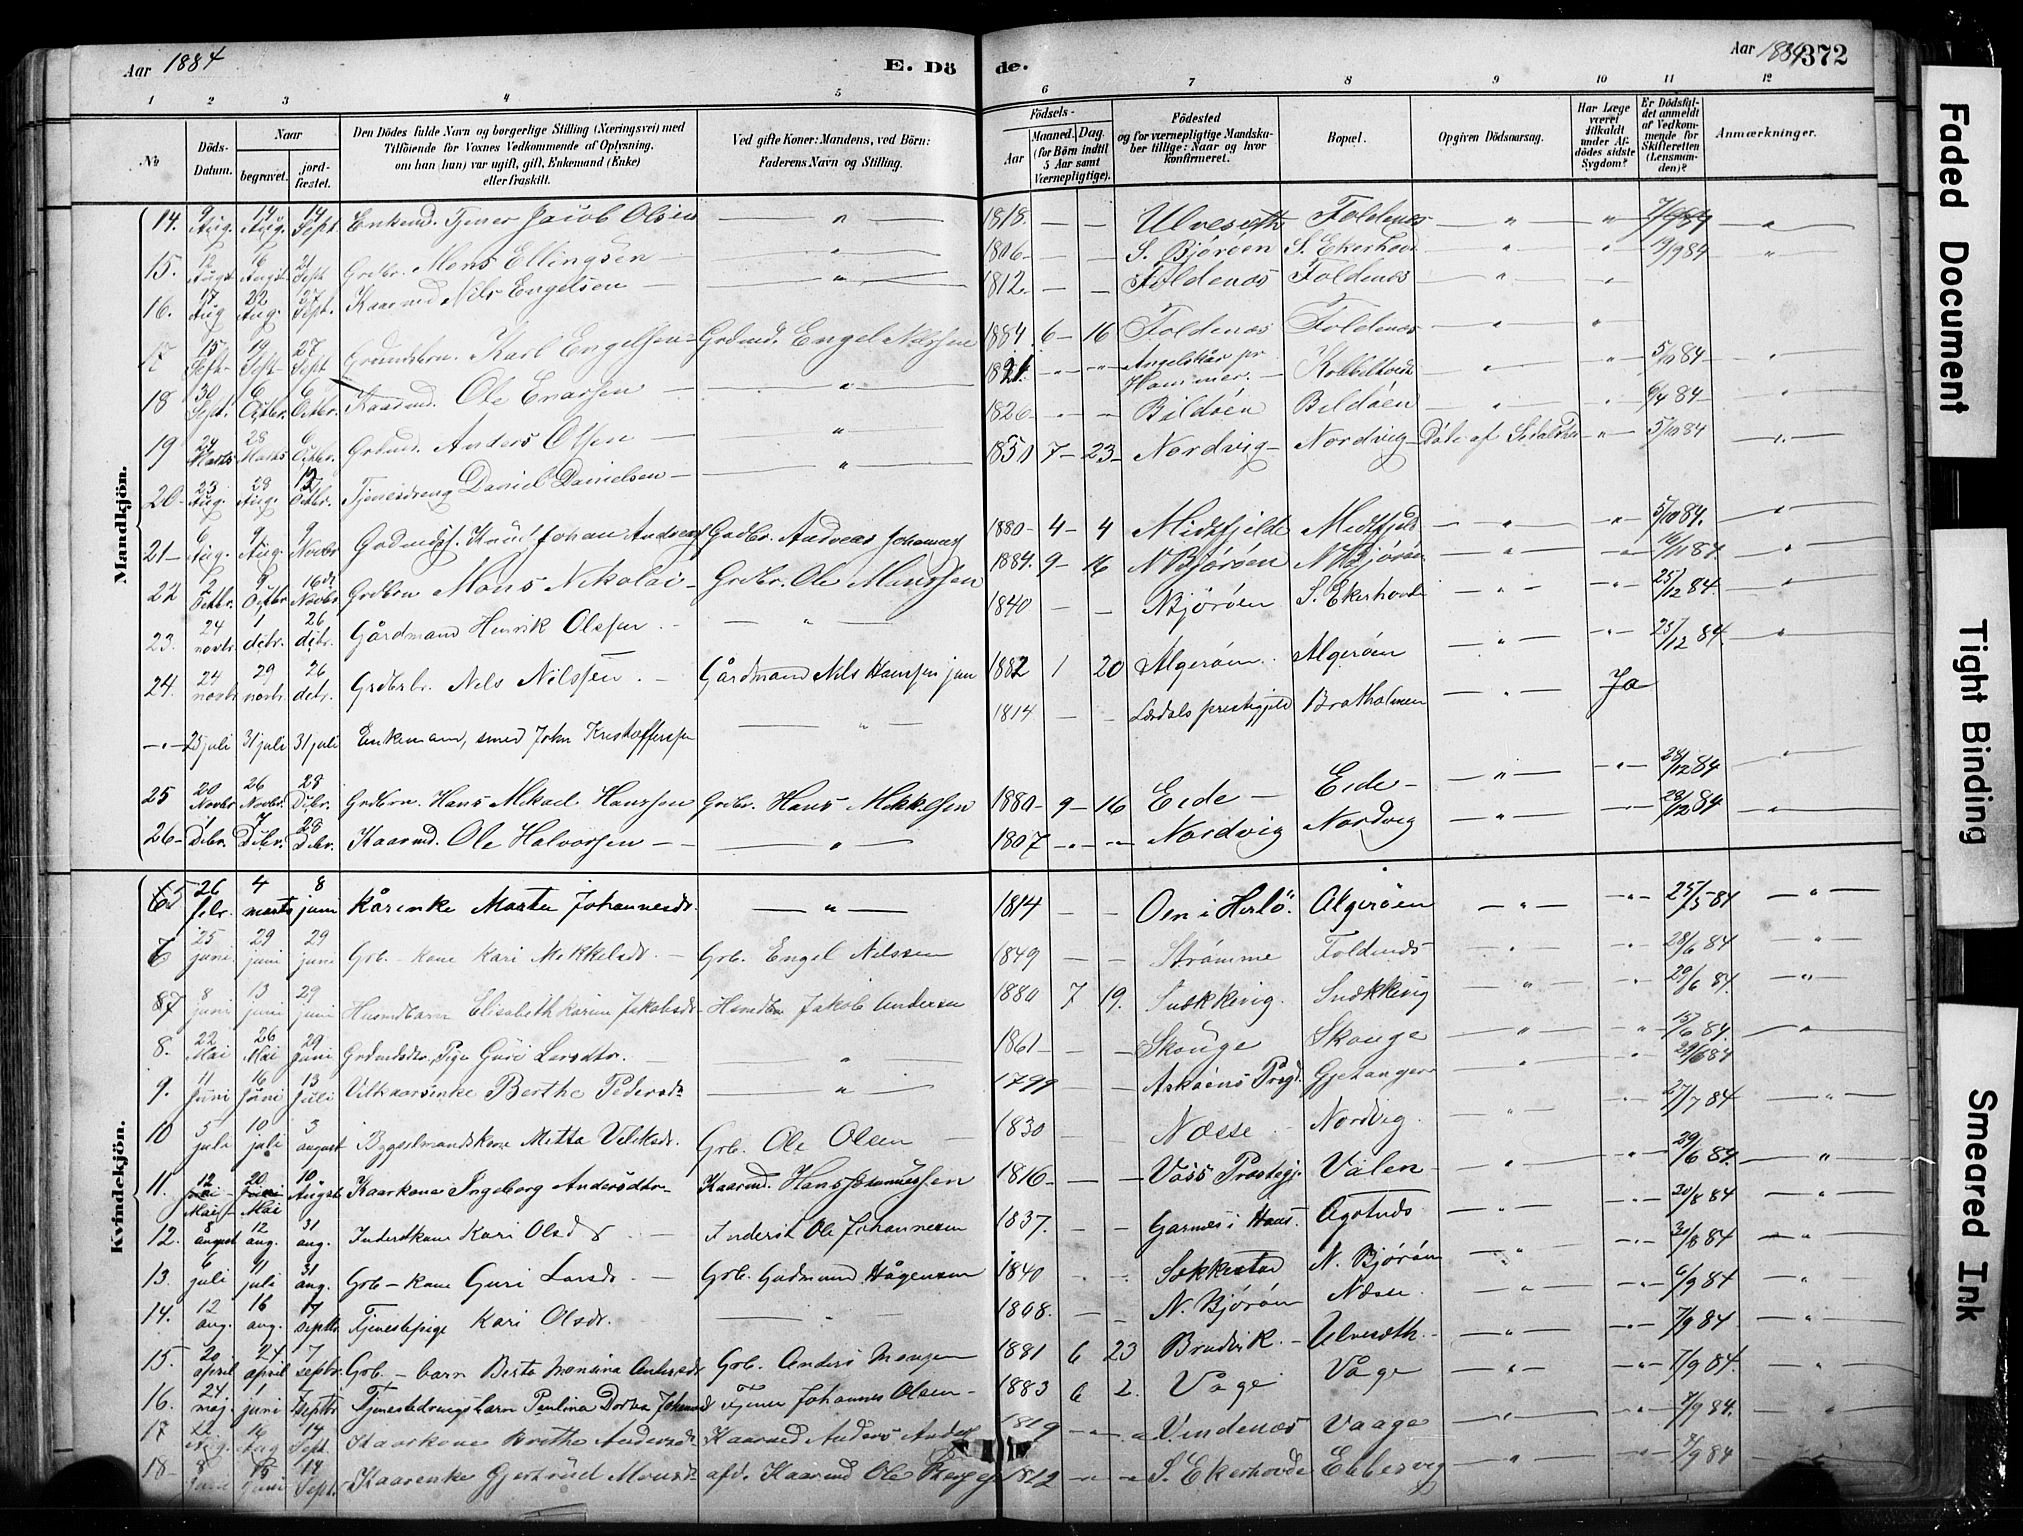 Aar 1884 E. Dö de. Aar 1884 372
1 2 3 4 5 6 7 8 9 10 11 12
No Döds-Datum. Naar begravet. jord-fæstet. Den Dödes fulde Navn og borgerlige Stilling (Næringsvei) med Tilföiende for Voxnes Vedkommende af Oplysning, om han (hun) var ugift, gift, Enkemand (Enke) eller fraskilt. Ved gifte Koner: Mandens, ved Börn: Faderens Navn og Stilling. Födsels- Aar Maaned. Dag. (for Börn indtil 5 Aar samt Værnepligtige). Födested og for værnepligtige Mandskaber tillige: Naar og hvor konfirmeret. Bopæl. Opgiven Dödsaarsag. Har Læge været tilkaldt under Afdödes sidste Sygdom? Er Dödsfaldet anmeldt af Vedkommende for Skifteretten (Lensmanden)? Anmærkninger.
Mandkjön.
14. 9 Aug. 14 Aug. 14 Sept. Enkemd. Tjener Jacob Olsen " 1818. — — Ulveseth Foldenæs " " "
15. 12 Augst 16 Augst. 21 Sept Grdbr. Mons Ellingsen " 1806 — — S. Björöen S. Ekerhovd " " 13/9 84 "
16. 17 Aug 22 Aug. 27 Sept. Kaarmd Nils Engelsen " 1812 — — Foldenæs Foldenæs " "
17 15 Sept 19 Sept 27 Sept Karl Engelsen Grdmd. Engel Nilssen 1884 6 16 Foldenæs Foldenæs " "
18 30 Sept. 6 Octbr. 6 Octbr. Kaarmd. Ole Enarsen " Angelskår pr Hammer. " " 5/10 84 "
19 24 Marts 28 Marts 6 Octbr. Grdmd. Anders Olsen " 1826 Bildöen Bildöen " " 84 "
20 23 Aug. 28 Aug. 12 Octbr. Tjenesdreng Daniel Danielsen " 1850 7 23 Nordvig Nordvig " 5/10 84 "
21 6 Aug. 9 Aug. 9 Novbr Knud Johan Andreas Grdbr. Andreas Johannes 1880 4 4 Midtfjeld Midtfjeld " " 5/10 84. "
22 2 Octbr. 9 Octbr 16de Novbr Grdbrn Mons Nikolai Grdbr. Ole Monssen 1884. 9 16 N Björöen N Björöen " " 16/11 84 "
23. 24 novbr. 1 debr. 26 debr. Gårdmand Henrik Olssen " 1840 — — NBjöröen S. Ekerhovde " " 25/12 84. "
24. 24 novbr 29 novbr. 26 debr. Nils Nilssen Gårdmand Nils Hanssen jun 1882 1 20 Algeröen Algeröen " " 25/12 84 "
" 25 juli 31 juli 31 juli Enkemann, smed John Kristoffersen " 1814 — — Lærdals prestegjeld Bratholmen " Ja
25 20 Novbr 26 Novbr. 28 Debr. Grdbrn. Hans Mikael Hanssen Grdbr. Hans Mikkelsen 1880 9 16 Eide Eide " " 28/12 84 "
26 1 Debr. 7 Debr. 28 Debr. Kaarmd. Ole Halvorsen " 1807 " " Nordvig Nordvig " " 28/12 84 "
Kvindekjön.
5 26 febr. 4 marts 8 juni Kårenke Marta Johannesdr. " 1814 — — Oen i Herlö. Algeröen " " 25/5 84 "
6 25 juni 29 juni 29 juni Grb. kone Kari Mikkelsdr. Grb. Engel Nilssen 1849 — — Strömme Foldenæs " " 28/6 84 "
7 8 juni 13 juni 29 juni Husmdbarn Elisabeth Karine Jakobsdr Jakob Andersen 1880 7 19. Snækkevig. Snækkevig " " 29/6 84. "
8. 22 Mai 26 Mai 29 Juni Grdmdsdtr, Pige Guri Larsdtr. " 1861 — — Skouge Skouge " " 15/6 84. "
9. 11 Juni 16 Juni 13 Juli Vilkaarsenke Berthe Pedersdr " 1799 — — Askøens Prgd. Gjetanger " " 29/6 84
10 5 juli 10 juli 3 august Bygselmandskone Mitta Grb. Ole Olsen 1830 — Næsse Nordvig. " " 27/7 84 "
11. 12 Mai 20 Mai 10 Augst Kaarkone Ingeborg Andersdtr Kaarmd. Hans Johannessen 1816 — — Voss Prestegj. Valen " " 29/6 84. "
12. 8 august 12 aug. 31 aug. Inderstkone Kari Olsdr Inderst Ole Johannesen 1837. — — Garnes i Haus. Agotnæs " " 30/8 84 "
13. 6 juli 11 juli 31 aug. Grb-kone Guri Larsdr Grb. Gudmund Hågensen 1840 Sekkestad N. Björöen " " 31/8 84 "
14. 12 aug. 16 aug. 7 septbr Tjenestepige Kari Olsdr. " N. Björöen Næsse. " " 6/9 84 "
15. 20 april 24 april 7 septbr. Grb-barn Berta Monsina Andersdr Grb. Anders Monsen 1881 6 23 Brudvik. Ulvesæth. " " 7/9 84. "
16. 24 maj 1 juni 7 septbr Tjenestedrengsbarn Paulina Dortea Johannesd Tjener Johannes Olsen 1883 6 2. Våge Våge " " 7/9 84. "
17 12 Aug. 16 Aug 14 Sept. Kaarkone Brithe Andersdr Kaarmd Anders Anders 1819 " " Vindenæs Vaage " " 7/9 84. "
18 8 Juni 15 Juni 14 Sept. Kaarenke Gjertrüd Monsdr afd. Kaarmd Ole 1812 " " S. Ekerhovde Ebbesvig " " 7/9 84 "
Faded Document
Tight Binding
Smeared Ink